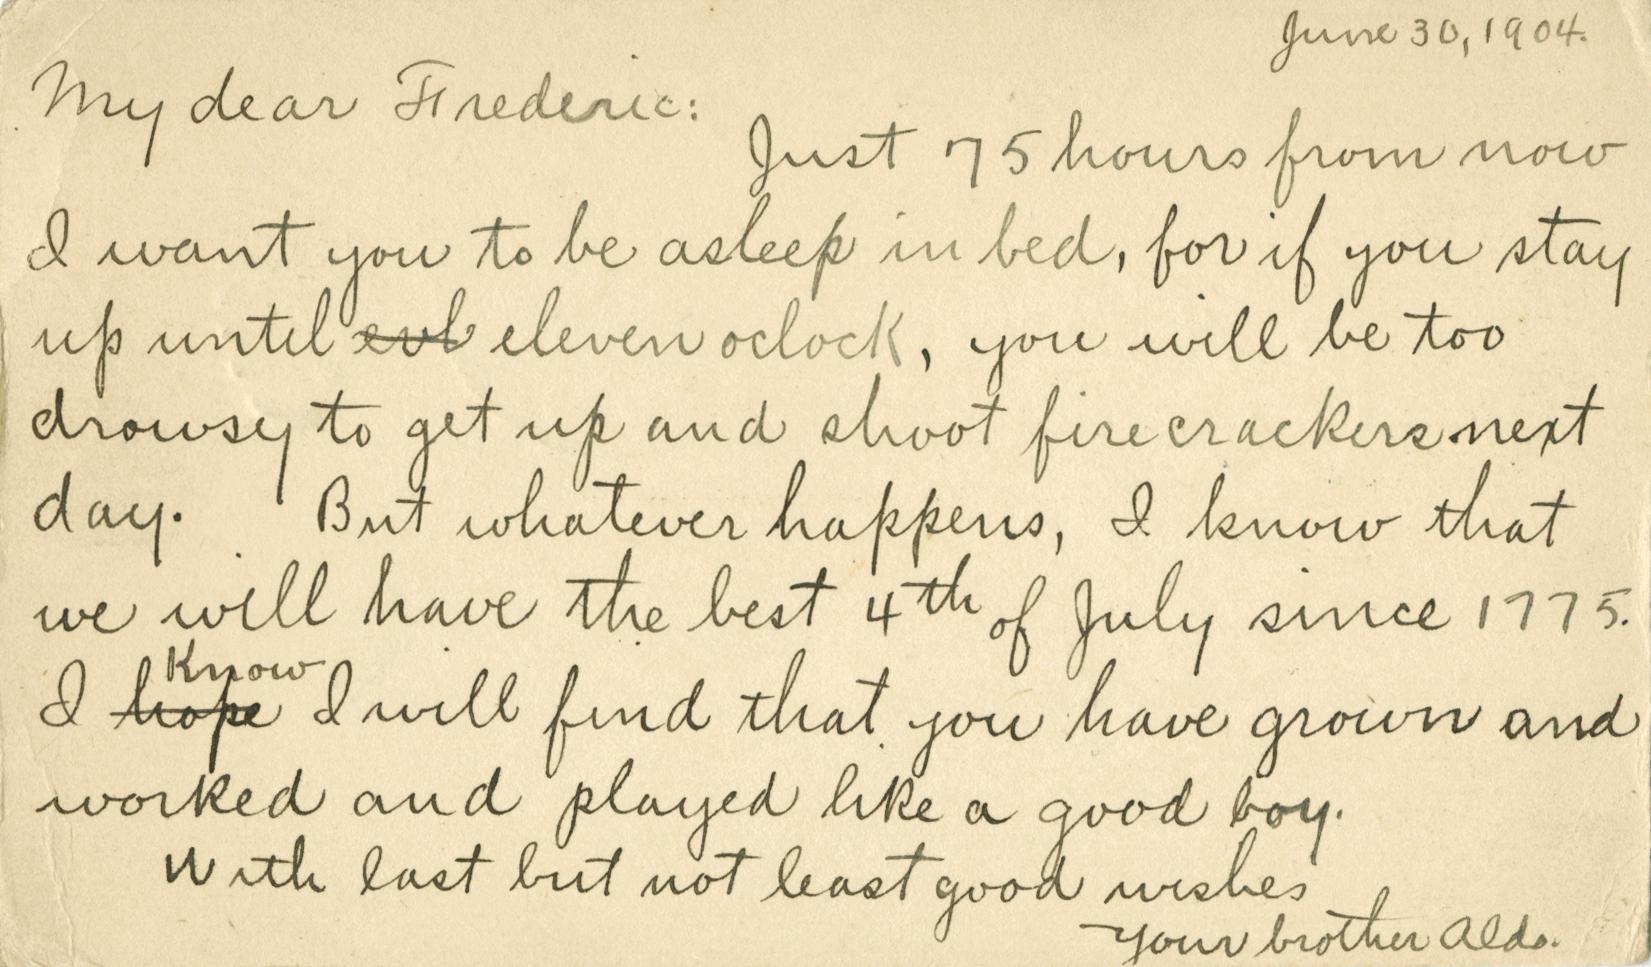 June 30, 1904.
My dear Frederic:
Just 75 hours from now
I want you to be asleep in bed, for if you stay
up until evl eleven oclock, you will be too
drowsy to get up and shoot firecrackers next
day. But whatever happens, I know that
we will have the best 4th of July since 1775.
Know
I hope I will find that you have grown and
worked and played like a good boy.
With last but not least good wishes
Your brother Aldo.